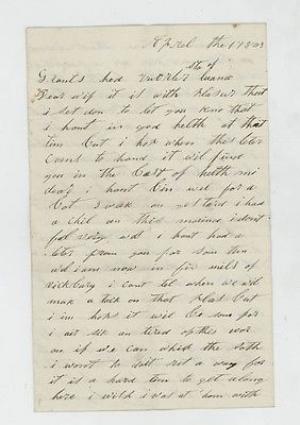 Aprel the 17 1863
Grants hed Luesana
Dear wif it is with plaser that
i set don to let you kno that
i hant in god helth at that
tim but i hop when this leter
cums to hand it wil find
you in the bast of helth mi
dear i hant bin wel for a
 on yesterd i had
a chil an this morning i dont
fel very wel i hant had a
leter from you for som tim
 i am now in fiv mils of
vicksburg i cant tel when we wil
mak a tack on that plas but
i im hops it wil be son for
i at sik an tired of this wor
an if we can whip the seth
i wont to dit a way for
it is a hard tim to get along
here i wish i was at hom with